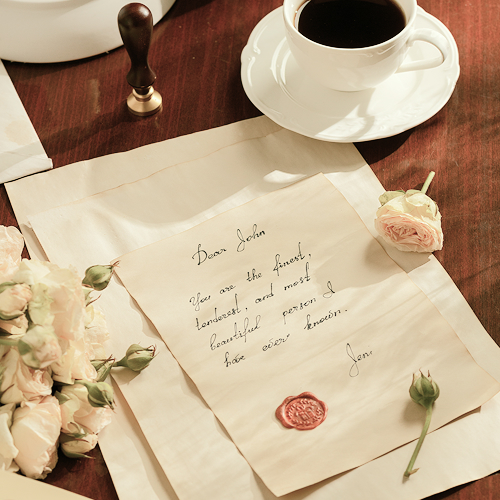 Dear John
You are the finest,
tenderest, and most
beautiful person I
have ever known.
Jen